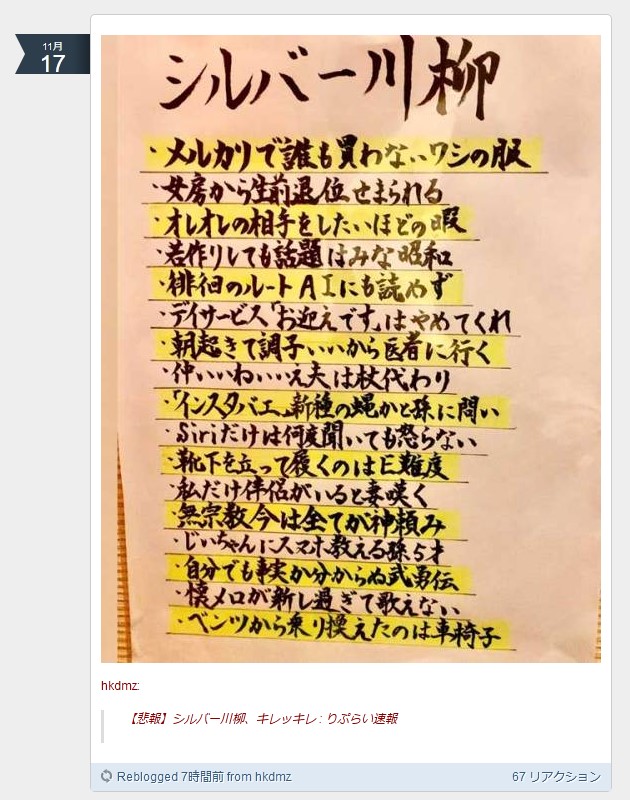 11月
17
シルバー川柳
・メルカリで誰も買わないワシの服
・女房から生前退位せまられる
・オレオレの相手をしたいほどの暇
・若作りしても話題はみな昭和
・徘徊のルートAIにも読めず
・デイサービス「お迎えです」はやめてくれ
・朝起きて調子いいから医者に行く
・仲いいねいいえ夫は杖代わり
・「インスタバエ」新種の蝿かと孫に問い
・Siriだけは何度聞いても怒らない
・靴下を立って履くのはE難度
・私だけ伴侶がいると妻嘆く
・無宗教今は全てが神頼み
・じいちゃんにスマホ教える孫5才
・自分でも事実か分からぬ武勇伝
・懐メロが新し過ぎて歌えない
・ベンツから乗り換えたのは車椅子
hkdmz:
【悲報】シルバー川柳、キレッキレ : りぷらい速報
Reblogged 7時間前 from hkdmz
67 リアクション